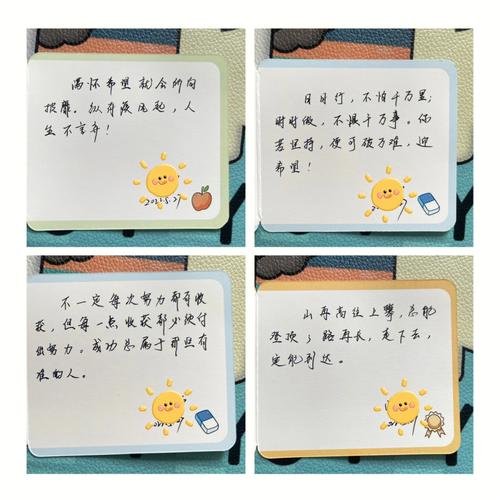 满怀希望就会所向
披靡。纵有疾风起，人
生不言弃！
2023.5.27
日日行，不怕千万里；
时时做，不惧千万事。但
若坚持，便可破万难，迎
希望！
不一定每次努力都有收
获，但每一点收获都必须付
出努力。成功总属于那些有
准备的人。
山再高往上攀，总能
登顶；路再长，走下去，
定能到达。